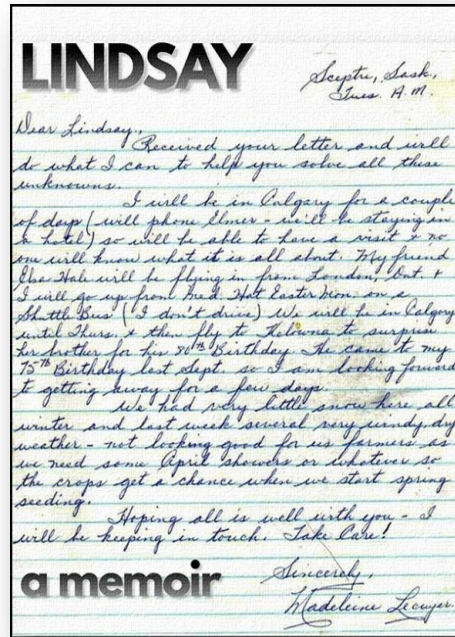 LINDSAY
Sceptre, Sask,
Tues. A.M.
Dear Lindsay,
Received your letter and will
do what I can to help you solve all these
unknowns.
I will be in Calgary for a couple
of days (will phone Elmer - we'll be staying in
a hotel) so will be able to have a visit & no
one will know what it is all about. My friend
Elsa Hale will be flying in from London, Ont. &
I will go up from Med. Hat Easter Mon. on a
Shuttle Bus (I don't drive) We will be in Calgary
until Thurs. & then fly to Kelowna to surprise
her brother for his 80th Birthday. He came to my
75th Birthday last Sept. so I am looking forward
to getting away for a few days.
We had very little snow here all
winter and last week several very windy, dry
weather - not looking good for us farmers as
we need some April showers or whatever so
the crops get a chance when we start spring
seeding.
Hoping all is well with you - I
will be keeping in touch. Take Care!
a memoir
Sincerely,
Madeleine Lecuyer.